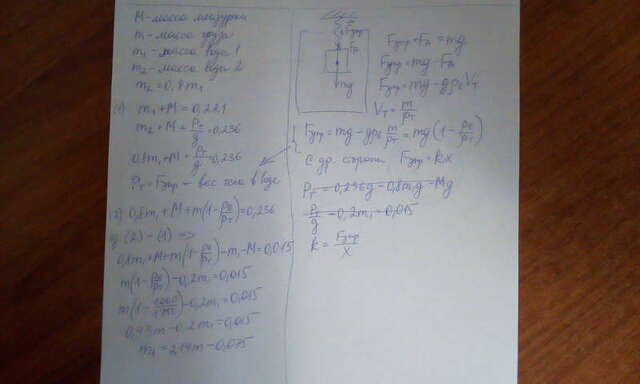 M - масса мензурки
m - масса груза
m₁ - масса воды 1
m₂ - масса воды 2
m₂ = 0,8m₁
(1) m₁ + M = 0,221
m₂ + M + Pт/g = 0,236
0,8m₁ + M + Pт/g = 0,236
Pт = Fупр - вес тела в воде
(2) 0,8m₁ + M + m(1 - ρв/ρт) = 0,236
(2) - (1) =>
0,8m₁ + M + m(1 - ρв/ρт) - m₁ - M = 0,015
m(1 - ρв/ρт) - 0,2m₁ = 0,015
- 0,2m₁ = 0,015
0,43m - 0,2m₁ = 0,015
m₁ = 2,14m - 0,075
Fупр
FA
mg
Fупр + FA = mg
Fупр = mg - FA
Fупр = mg - gρвVт
Vт = m/ρт
Fупр = mg - gρв m/ρт = mg(1 - ρв/ρт)
С др. стороны Fупр = kx
Pт = 0,236g - 0,8m₁g - Mg
Pт/g - 0,2m₁ = 0,015
k = Fупр/x